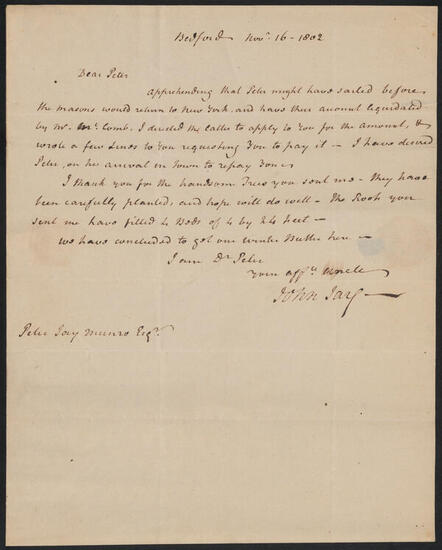 Bedford Novr. 16 - 1802
Dear Peter
apprehending that Peter might have sailed before
the masons would return to New York, and have their account liquidated
by Mr. McComb. I desired the latter to apply to You for the Amount, &
wrote a few Lines to You requesting You to pay it — I have desired
Peter, on his arrival in Town to repay You
I thank you for the handsome Trees you sent me - they have
been carefully planted, and hope will do well - the Roots you
sent me have filled 4 Beds of 4 by 24 feet —
we have concluded to get our winter Butter here —
I am Dr. Peter
Your affte. Uncle
John Jay —
Peter Jay Munro Esqr.